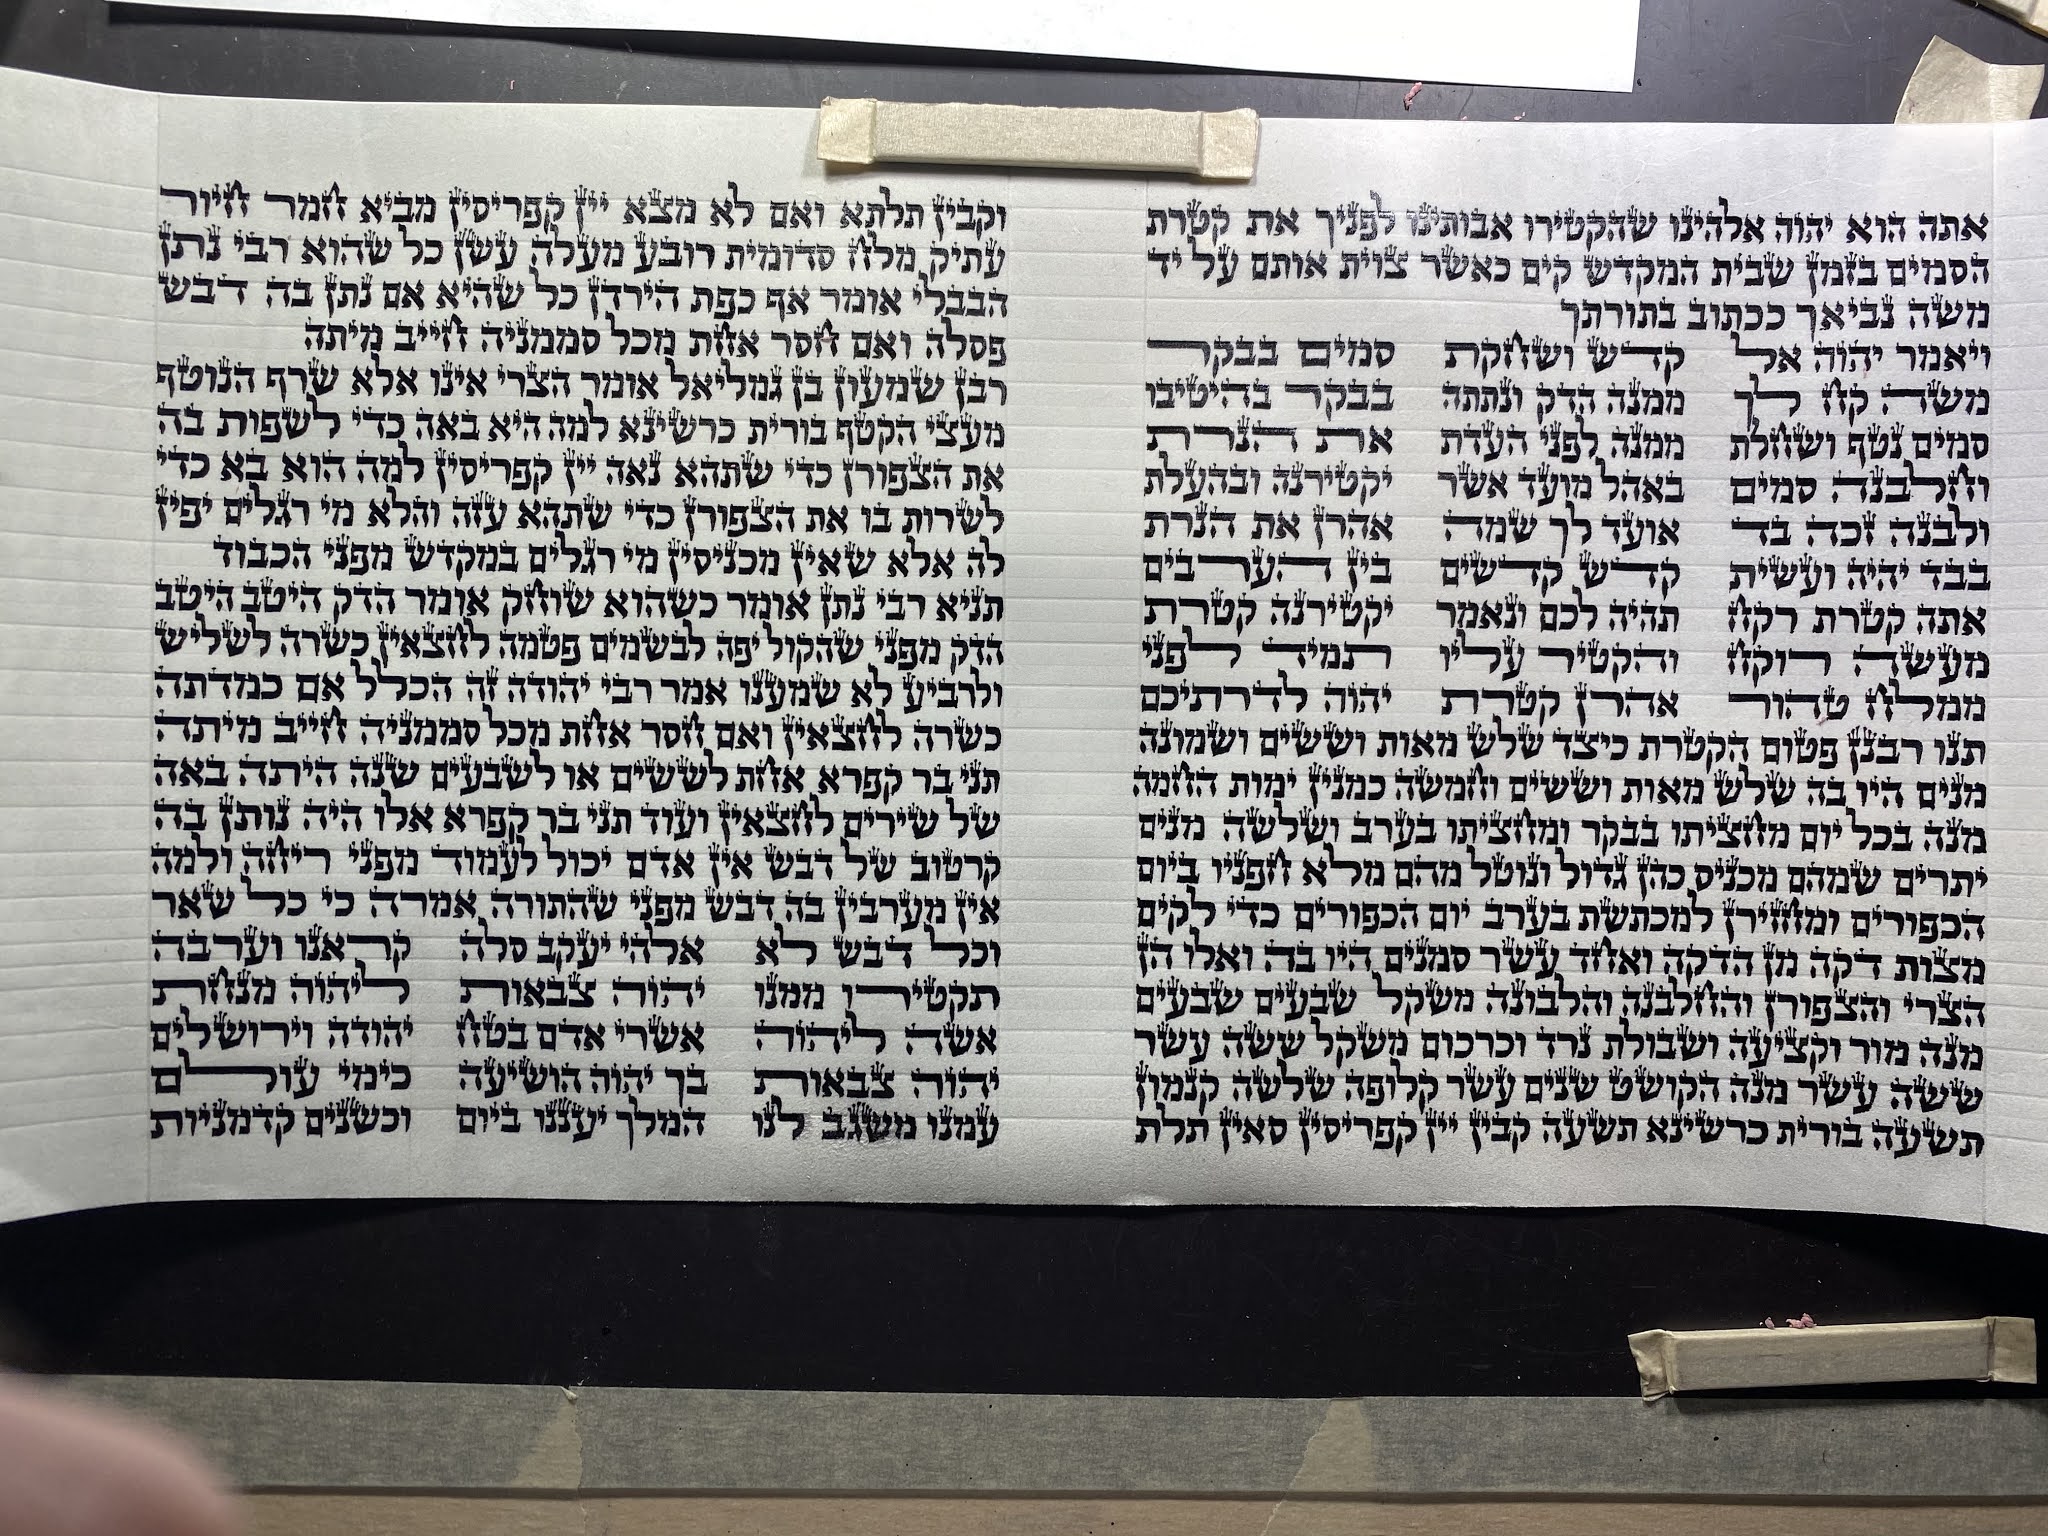 אתה הוא יהוה אלהינו שהקטירו אבותינו לפניך את קטרת
הסמים בזמן שבית המקדש קים כאשר צוית אותם על יד
משה נביאך ככתוב בתורתך
ויאמר יהוה אל קדש ושחקת סמים בבקר
משה קח לך ממנה הדק ונתתה בבקר בהיטיבו
סמים נטף ושחלת ממנה לפני העדת את הנרת
וחלבנה סמים באהל מועד אשר יקטירנה ובהעלת
ולבנה זכה בד אועד לך שמה אהרן את הנרת
בבד יהיה ועשית קדש קדשים בין הערבים
אתה קטרת רקח תהיה לכם ונאמר יקטירנה קטרת
מעשה רוקח והקטיר עליו תמיד לפני
ממלח טהור אהרן קטרת יהוה לדרתיכם
תנו רבנן פטום הקטרת כיצד שלש מאות וששים ושמונה
מנים היו בה שלש מאות וששים וחמשה כמנין ימות החמה
מנה בכל יום מחציתו בבקר ומחציתו בערב ושלשה מנים
יתרים שמהם מכניס כהן גדול ונוטל מהם מלא חפניו ביום
הכפורים ומחזירן למכתשת בערב יום הכפורים כדי לקים
מצות דקה מן הדקה ואחד עשר סמנים היו בה ואלו הן
הצרי והצפורן והחלבנה והלבונה משקל שבעים שבעים
מנה מור וקציעה ושבולת נרד וכרכום משקל ששה עשר
ששה עשר מנה הקושט שנים עשר קלופה שלשה קנמון
תשעה בורית כרשינא תשעה קבין יין קפריסין סאין תלת
וקבין תלתא ואם לא מצא יין קפריסין מביא חמר חיור
עתיק מלח סדומית רובע מעלה עשן כל שהוא רבי נתן
הבבלי אומר אף כפת הירדן כל שהיא אם נתן בה דבש
פסלה ואם חסר אחת מכל סממניה חייב מיתה
רבן שמעון בן גמליאל אומר הצרי אינו אלא שרף הנוטף
מעצי הקטף בורית כרשינא למה היא באה כדי לשפות בה
את הצפורן כדי שתהא נאה יין קפריסין למה הוא בא כדי
לשרות בו את הצפורן כדי שתהא עזה והלא מי רגלים יפין
לה אלא שאין מכניסין מי רגלים במקדש מפני הכבוד
תניא רבי נתן אומר כשהוא שוחק אומר הדק היטב היטב
הדק מפני שהקול יפה לבשמים פטמה לחצאין כשרה לשליש
ולרביע לא שמענו אמר רבי יהודה זה הכלל אם כמדתה
כשרה לחצאין ואם חסר אחת מכל סממניה חייב מיתה
תני בר קפרא אחת לששים או לשבעים שנה היתה באה
של שירים לחצאין ועוד תני בר קפרא אלו היה נותן בה
קרטוב של דבש אין אדם יכול לעמוד מפני ריחה ולמה
אין מערבין בה דבש מפני שהתורה אמרה כי כל שאר
וכל דבש לא אלהי יעקב סלה קראנו וערבה
תקטירו ממנו יהוה צבאות ליהוה מנחת
אשה ליהוה אשרי אדם בטח יהודה וירושלים
יהוה צבאות בך יהוה הושיעה כימי עולם
עמנו משגב לנו המלך יעננו ביום וכשנים קדמניות